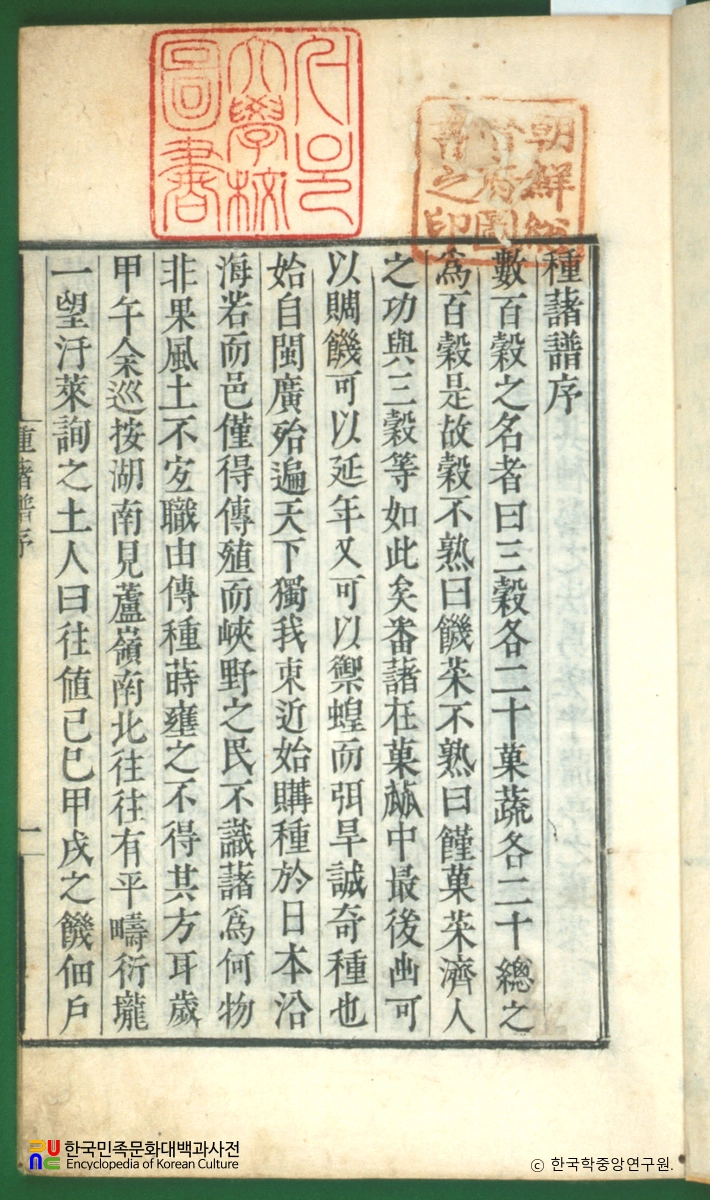 種藷譜序
數百穀之名者曰三穀各二十菓蔬各二十總之
爲百穀是故穀不熟曰饑菜不熟曰饉菓菜濟人
之功與三穀等如此矣番藷在菓蓏中最後出可
以賙饑可以延年又可以禦蝗而弭旱誠奇種也
始自閩廣殆遍天下獨我東近始購種於日本沿
海若而邑僅得傳殖而峽野之民不識藷爲何物
非果風土不宐職由傳種蒔壅之不得其方耳歲
甲午余巡按湖南見蘆嶺南北往往有平疇衍壠
一望汙萊詢之土人曰往値己巳甲戌之饑佃戶
種藷譜序
一
朝鮮總
督府圖
書之印
大學校
圖書
한국민족문화대백과사전
Encyclopedia of Korean Culture
ⓒ 한국학중앙연구원.